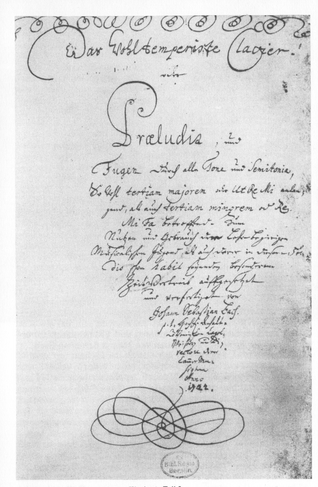 Das Wohltemperirte Clavier.
oder
Præludia, und
Fugen durch alle Tone und Semitonia,
So wohl tertiam majorem oder Ut Re Mi anlan-
gend, als auch tertiam minorem oder Re
Mi Fa betreffend. Zum
Nutzen und Gebrauch der Lehrbegierigen
Musicalischen Jugend, als auch derer in diesem stu-
dio schon habil seyenden besonderem
Zeitvertreib auffgesetzet
und verfertiget von
Johann Sebastian Bach.
p. t. HochFürstl.
Capel-
Meistern und
Di-
rectore derer
Camer Mu-
siquen
Anno
1722.